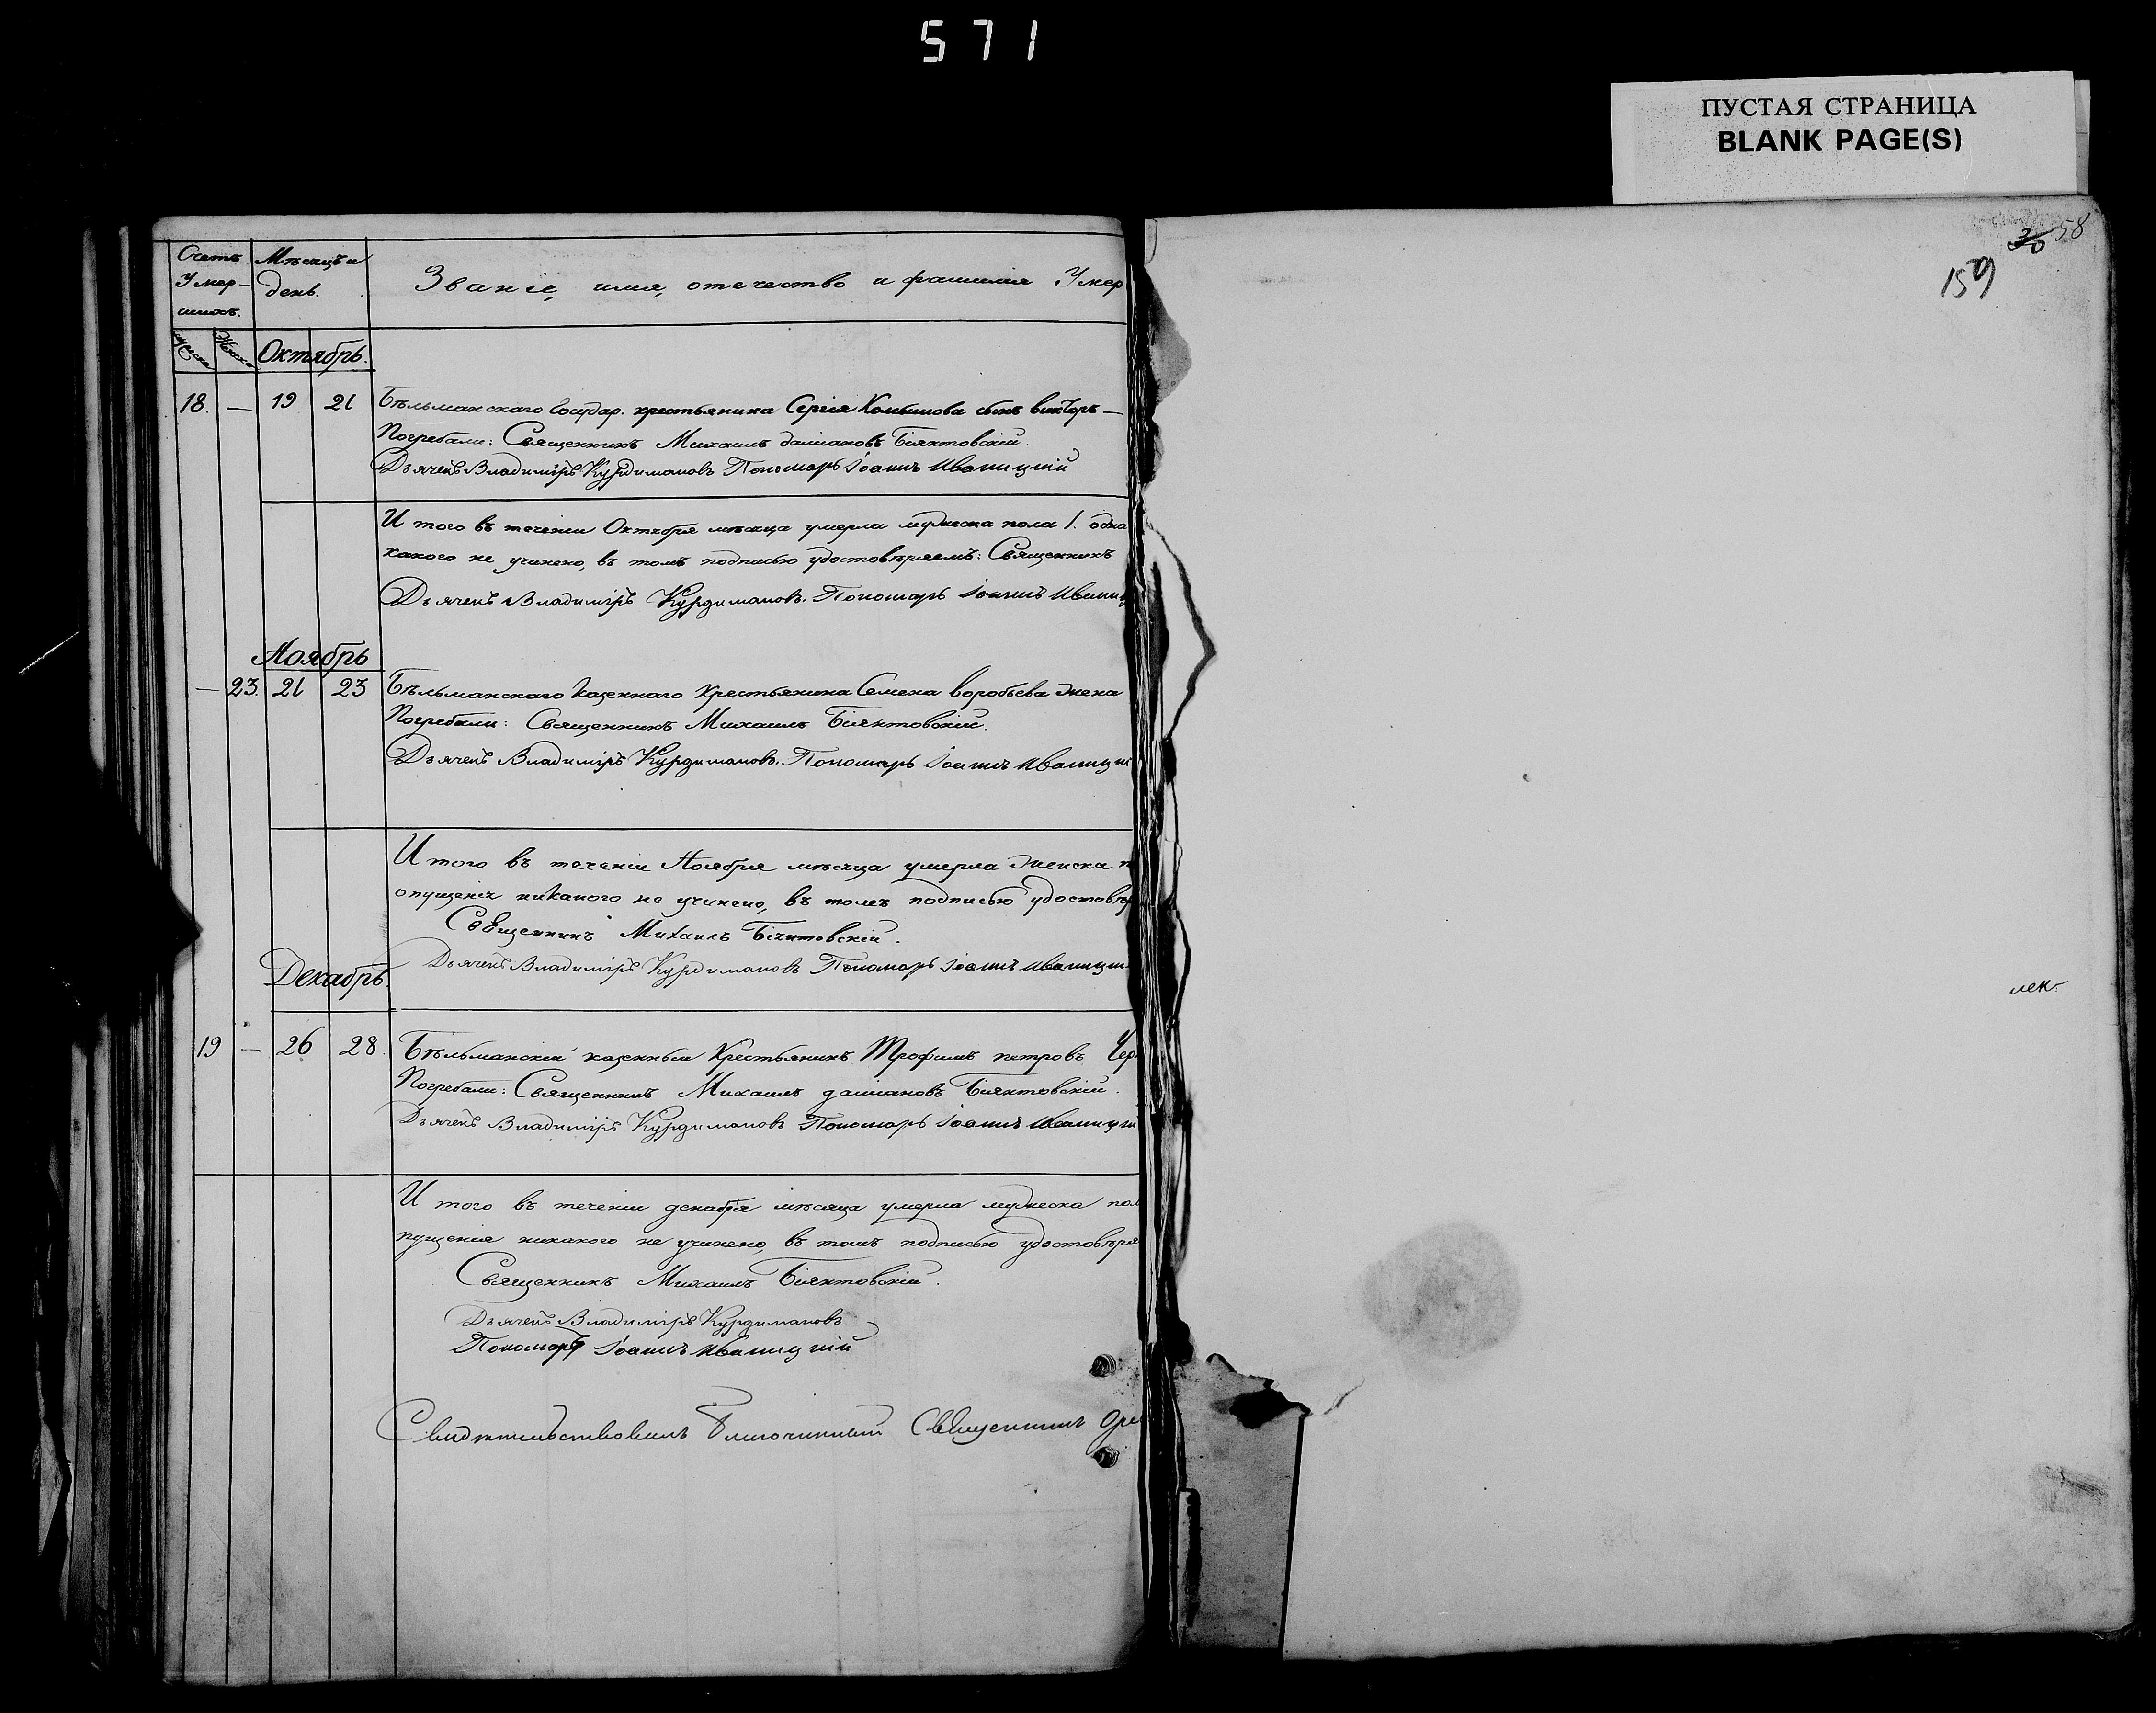 571
ПУСТАЯ СТРАНИЦА
BLANK PAGE(S)
58
159
Счетъ Умершихъ.
Мѣсяцъ и день.
Званіе, имя, отечество и фамилія Умер
Октябрь.
18. — 19 21 Бѣльманскаго Государ. крестьянина Сергія сынъ Викторъ —
Погребали: Священникъ Михаилъ Даміановъ Біянтовскій.
Дьячекъ Владиміръ Курдимановъ Пономарь Іоаннъ Иваницкій
И того въ теченіи Октября мѣсяца умерла мужеска пола 1. одна
какого не учинено, въ томъ подписью удостовѣряемъ: Священникъ
Дьячекъ Владиміръ Курдимановъ. Пономарь Іоаннъ Иваниц
Ноябрь
— 23. 21 23 Бѣльманскаго казеннаго Крестьянина Семена Воробьева жена
Погребали: Священникъ Михаилъ Біянтовскій.
Дьячекъ Владиміръ Курдимановъ. Пономарь Іоаннъ Иваницк
И того въ теченіи Ноября мѣсяца умерла женска п
опущенія никакого не учинено, въ томъ подписью удостовѣр
Священникъ Михаилъ Біянтовскій.
Дьячекъ Владиміръ Курдимановъ Пономарь Іоаннъ Иваницк
Декабрь.
19 — 26 28. Бѣльманскій казенный Крестьянинъ Трофимъ Петровъ Чер
Погребали: Священникъ Михаилъ Даміановъ Біянтовскій.
Дьячекъ Владиміръ Курдимановъ Пономарь Іоаннъ Иваницкі
И того въ теченіи декабря мѣсяца умерла мужеска пол
пущенія никакого не учинено, въ томъ подписью удостовѣря
Священникъ Михаилъ Біянтовскій.
Дьячекъ Владиміръ Курдимановъ
Пономарь Іоаннъ Иваницкій
Свидѣтельствовалъ Благочинный Священникъ